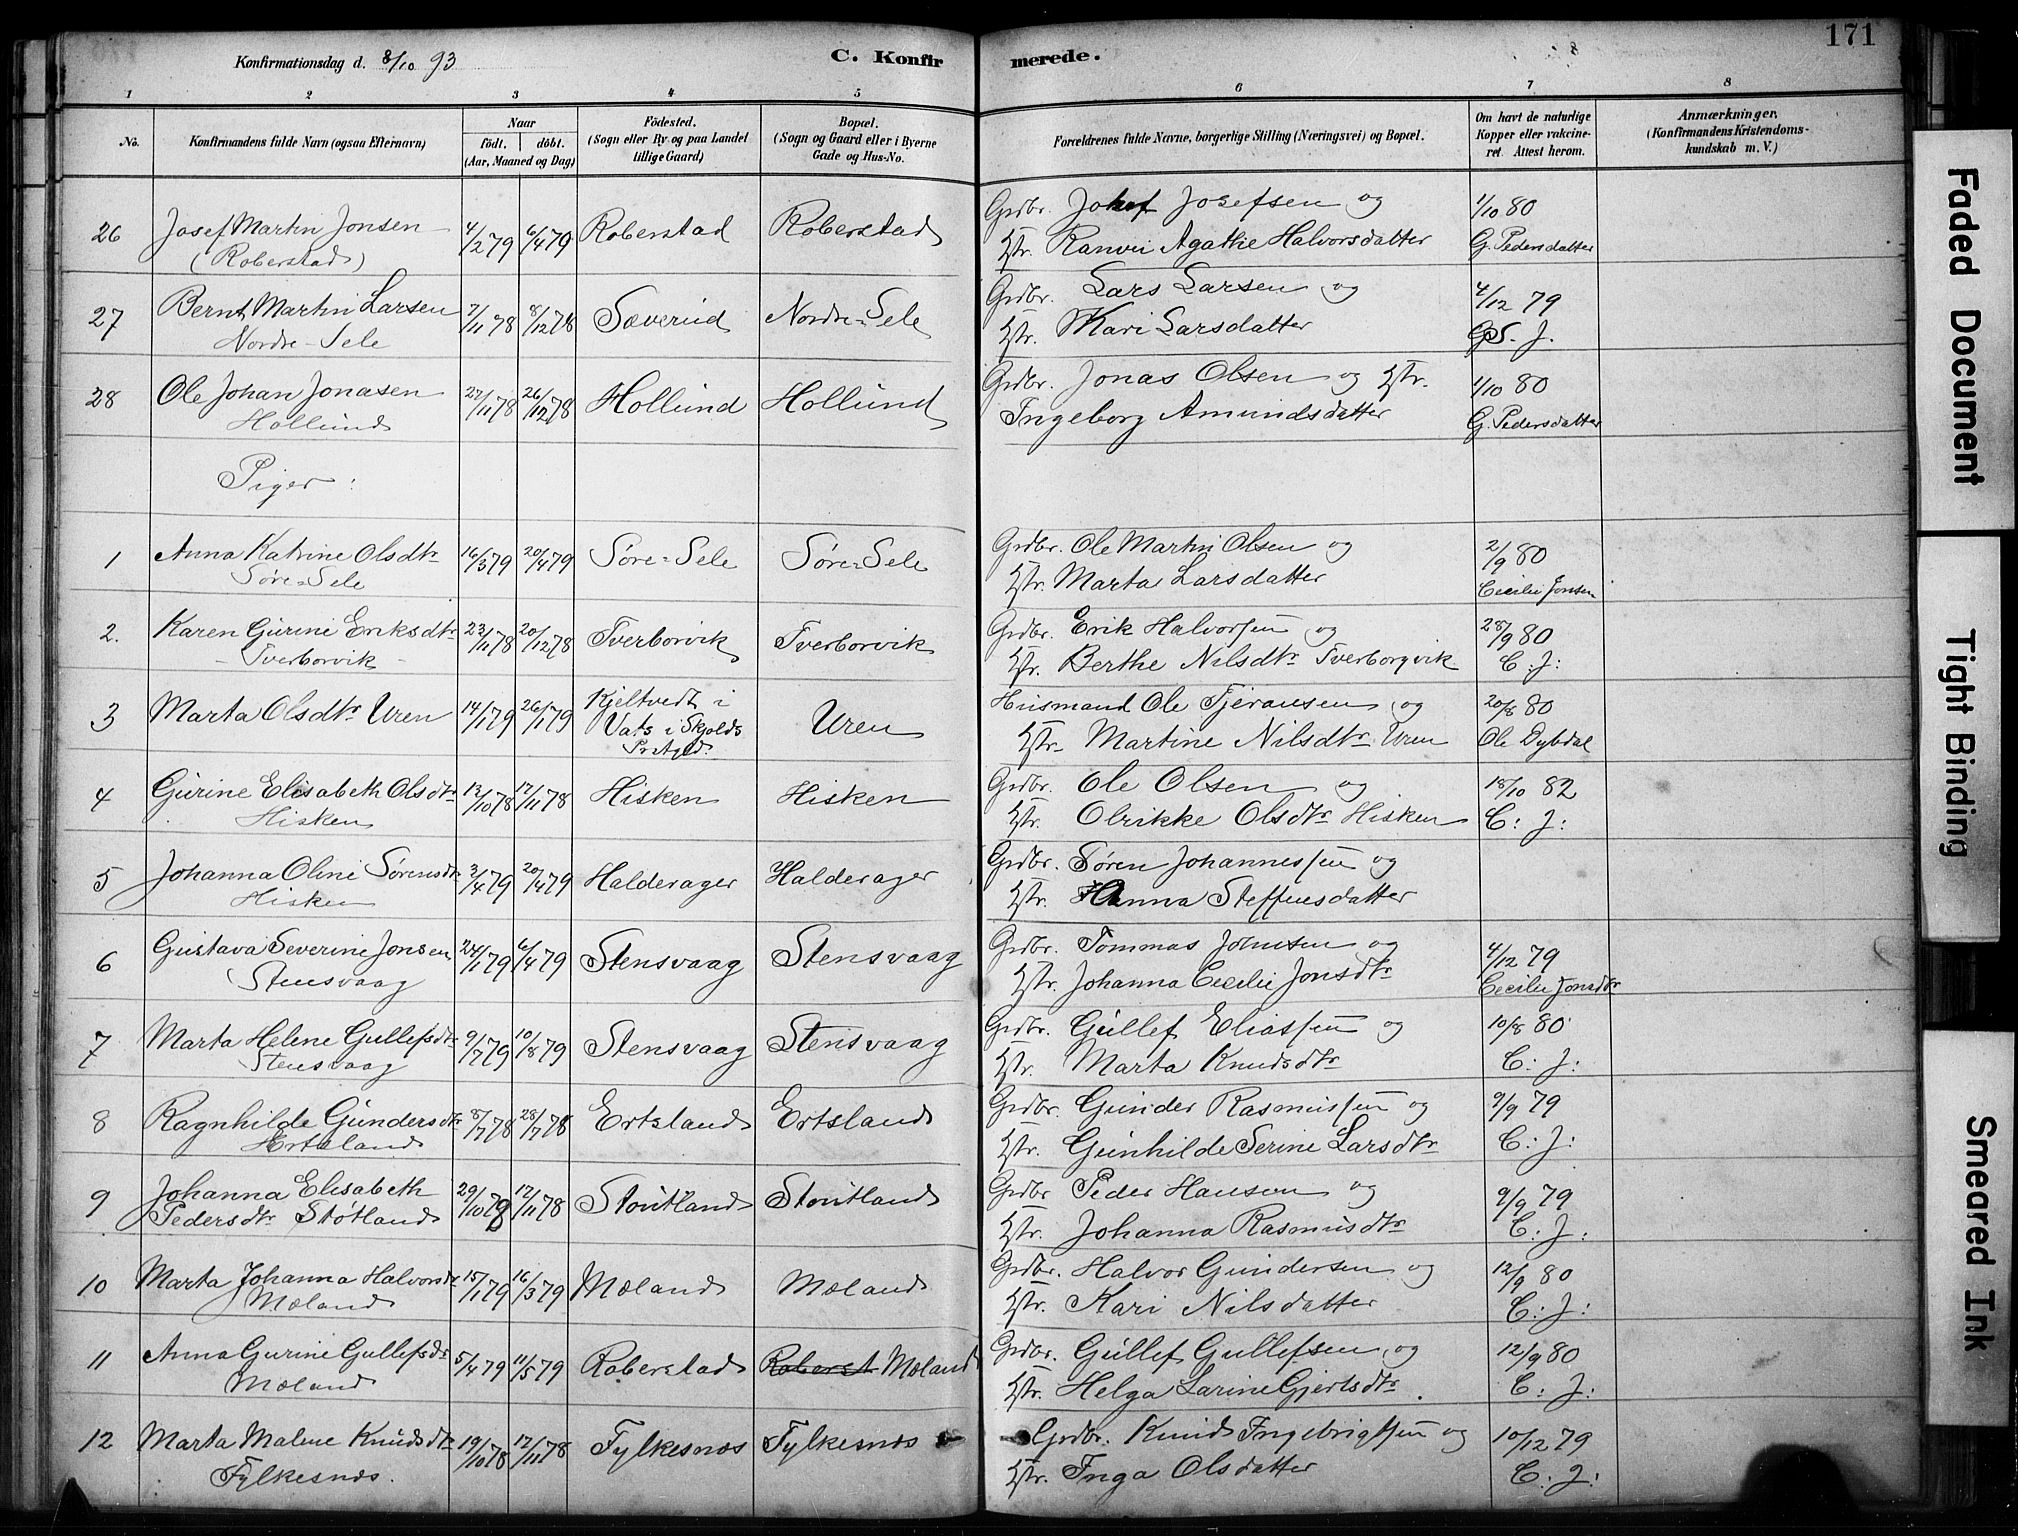 171
Konfirmationsdag d. 8/10 93
C. Konfirmerede.
1 2 3 4 5 6 7 8
No.
Konfirmandens fulde Navn (ogsaa Efternavn)
Naar
födt. döbt.
(Aar, Maaned og Dag)
Födested.
(Sogn eller By og paa Landet
tillige Gaard)
Bopæl.
(Sogn og Gaard eller i Byerne
Gade og Hus-No.
Forældrenes fulde Navne, borgerlige Stilling (Næringsvei) og Bopæl.
Om havt de naturlige
Kopper eller vakcine-
ret. Attest herom.
Anmærkninger.
(Konfirmandens Kristendoms-
kundskab m. V.)
26 Josef Martin Jonsen 4/2 79 6/4 79 Roberstad Roberstad Grdbr. Josefsen og 1/10 80
(Roberstad) Hstr. Ranvei Agathe Halvorsdatter G. Pedersdatter
27 Bernt Martin Larsen 7/11 78 8/12 78 Sæverud Nordre-Sele Grdbr. Lars Larsen og 4/12 79
Nordre-Sele Hstr. Kari Larsdatter
28 Ole Johan Jonasen 27/11 78 26/12 78 Hollund Hollund Grdbr. Jonas Olsen og Hstr. 1/10 80
Hollund Ingeborg Amundsdatter G. Pedersdatter
Piger:
1 Anna Katrine Olsdtr 16/3 79 20/4 79 Søre-Sele Søre-Sele Grdbr. Ole Martin Olsen og 2/9 80
Søre-Sele Hstr. Marta Larsdatter Cecilie Jonsen
2. Karen Gurine Eriksdtr 23/11 78 20/12 78 Tverborvik Tverborvik Grdbr. Erik Halvorsen og 28/9 80
- Tverborvik - Hstr. Berthe Nilsdtr Tverborgvik C: J:
3 Marta Olsdtr Uren 14/1 79 26/1 79 Kjeltvedt i Vats i Skjolds Prstgjld. Uren Husmand Ole Tjeransen og 20/8 80
Hstr. Martine Nilsdtr Uren Ole Dybdal
4 Gurine Elisabeth Olsdtr 12/10 78 17/11 78 Hisken Hisken Grdbr. Ole Olsen og 18/10 82
Hisken Hstr. Olrikke Olsdtr Hisken C: J:
5 Johanna Oline Sørensdtr 3/4 79 20/4 79 Halderager Halderager Grdbr. Søren Johannessen og
Hisken Hstr. Hanna Steffensdatter
6 Gustava Severine Jonsen 24/1 79 6/4 79 Stensvaag Stensvaag Grdbr. Tommas Johnsen og 4/12 79
Stensvaag Hstr. Johanna Cecilie Jonsdtr Cecilie Jonsdtr
7 Marta Helene Gullefsdtr 9/7 79 10/8 79 Stensvaag Stensvaag Grdbr. Gullef Eliassen og 10/8 80
Stensvaag Hstr. Marta Knudsdtr C: J:
8 Ragnhilde Gundersdtr 8/7 78 28/7 78 Ertsland Ertsland Grdbr. Gunder Rasmussen og 9/9 79
Ertsland Hstr. Gunhilde Serine Larsdtr C: J:
9 Johanna Elisabeth 29/10 78 17/11 78 Stoutland Stoutland Grdbr Peder Hansen og 9/9 79
Pedersdtr Støtland Hstr. Johanna Rasmusdtr C: J:
10 Marta Johanna Halvorsdtr 15/1 79 16/3 79 Mæland Mæland Grdbr. Halvor Gundersen og 12/9 80
Mæland Hstr. Kari Nilsdatter C: J:
11 Anna Gurine Gullefsdtr 5/4 79 11/5 79 Roberstad Roberst Mæland Grdbr. Gullef Gullefsen og 12/9 80
Mæland Hstr. Helga Larine Gjertsdtr. C: J:
12 Marta Malene Knudsdtr 19/10 78 17/11 78 Fylkesnæs Fylkesnæs Grdbr. Knud Ingebrigtsen og 10/12 79
Fylkesnæs. Hstr. Inga Olsdatter C: J:
Faded Document
Tight Binding
Smeared Ink